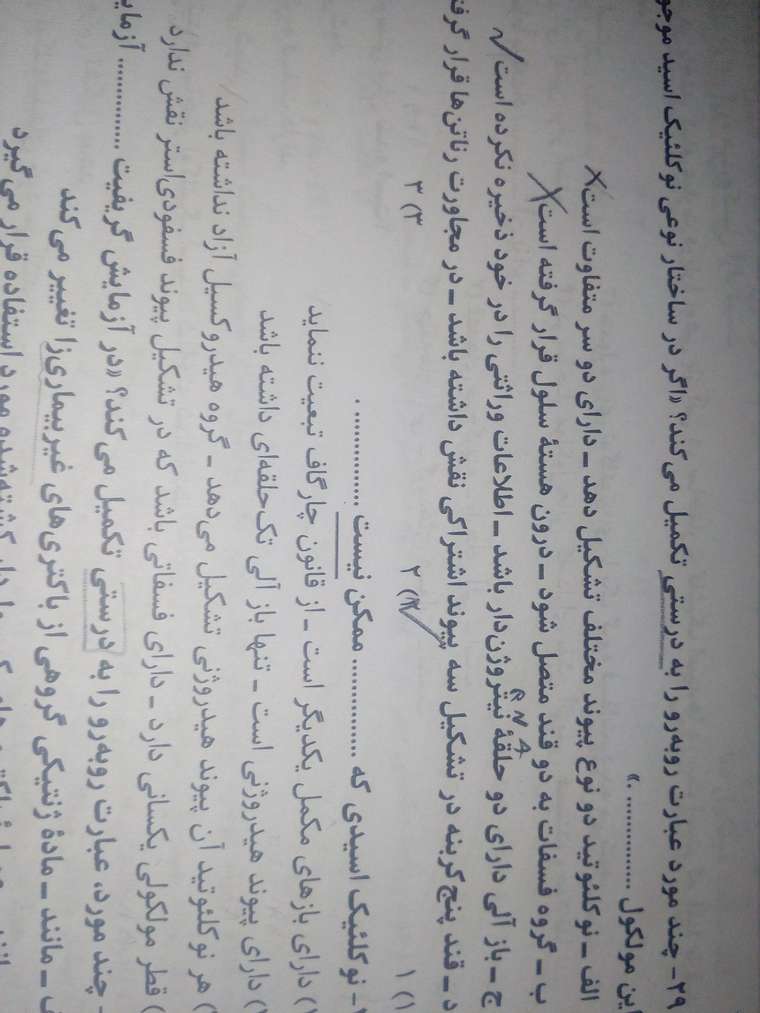 ۲۹- چند مورد عبارت روبه‌رو را به درستی تکمیل می‌کند؟ «اگر در ساختار نوعی نوکلئیک اسید
این مولکول ............... .»
الف ـ نوکلئوتید دو نوع پیوند مختلف تشکیل دهد ـ دارای دو سر متفاوت است
ب ـ گروه فسفات به دو قند متصل شود ـ درون هستهٔ سلول قرار گرفته است
ج ـ باز آلی دارای دو حلقهٔ نیتروژن‌دار باشد ـ اطلاعات وراثتی را در خود ذخیره نکرده است
د ـ قند پنج‌کربنه در تشکیل سه پیوند اشتراکی نقش داشته باشد ـ در مجاورت رناتن‌ها قرار
۱) ۱ ۲) ۲ ۳) ۳
نوکلئیک اسیدی که ............... ممکن نیست ............... .
۱) دارای بازهای مکمل یکدیگر است ـ از قانون چارگاف تبعیت ننماید
دارای پیوند هیدروژنی است ـ تنها باز آلی تک‌حلقه‌ای داشته باشد
هر نوکلئوتید آن پیوند هیدروژنی تشکیل می‌دهد ـ گروه هیدروکسیل آزاد نداشته باشد
قطر مولکولی یکسانی دارد ـ دارای فسفاتی باشد که در تشکیل پیوند فسفودی‌استر نقش ندارد
چند مورد، عبارت روبه‌رو را به درستی تکمیل می‌کند؟ «در آزمایش گریفیت ...............
ـ مانند ـ مادهٔ ژنتیکی گروهی از باکتری‌های غیربیماری‌زا تغییر می‌کند
کشته‌شده مورد استفاده قرار می‌گیرد